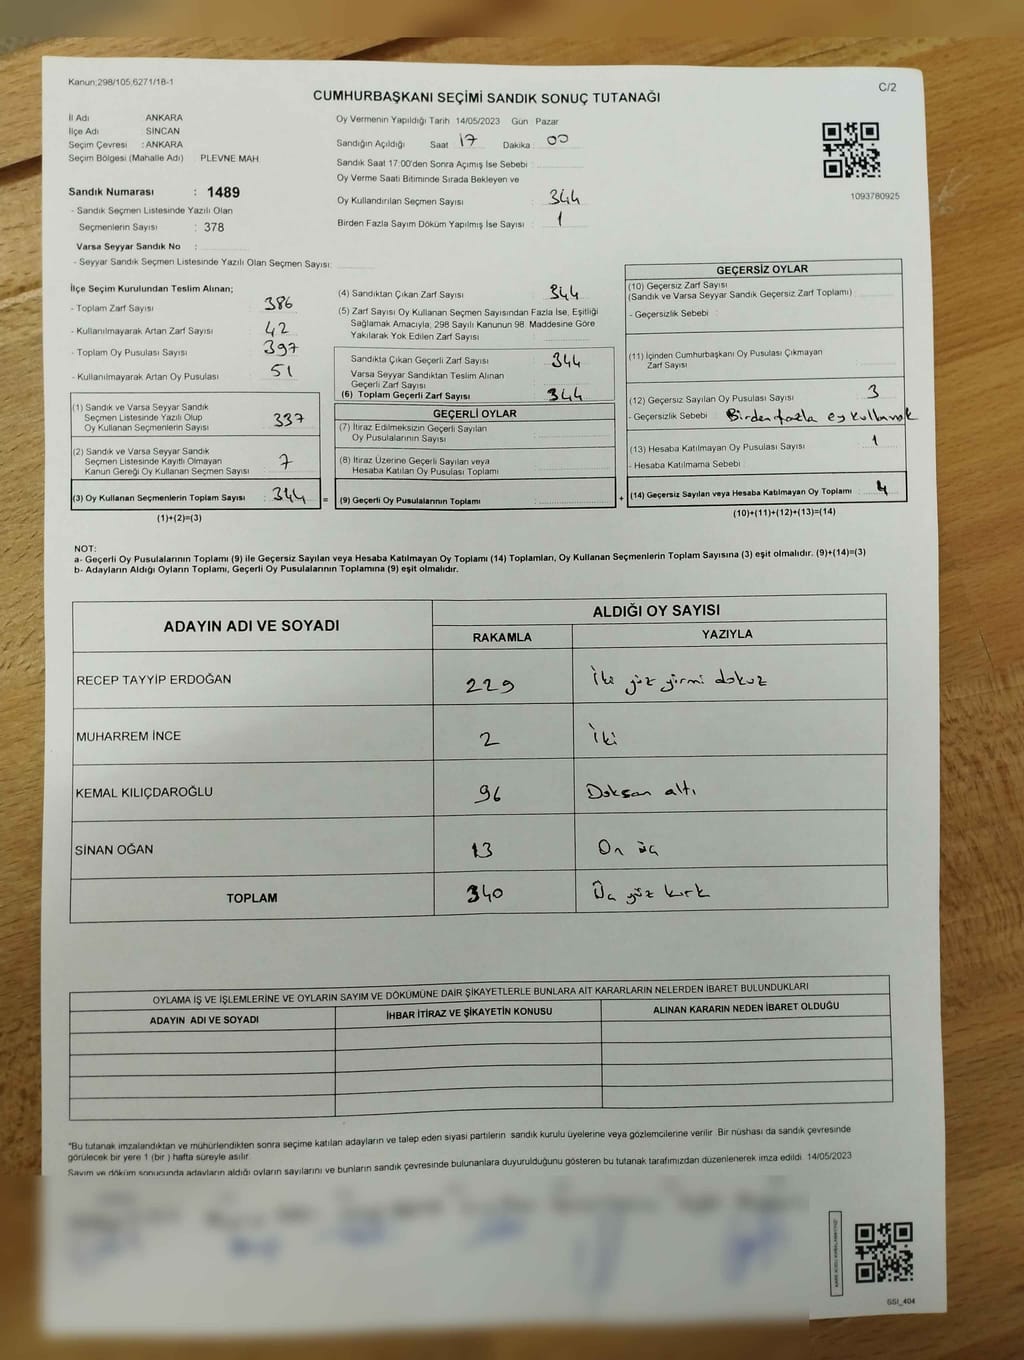 Kanun:298/105,6271/18-1
C/2
CUMHURBAŞKANI SEÇİMİ SANDIK SONUÇ TUTANAĞI
İl Adı ANKARA
İlçe Adı SİNCAN
Seçim Çevresi : ANKARA
Seçim Bölgesi (Mahalle Adı) PLEVNE MAH
Sandık Numarası : 1489
- Sandık Seçmen Listesinde Yazılı Olan
Seçmenlerin Sayısı : 378
Varsa Seyyar Sandık No :
- Seyyar Sandık Seçmen Listesinde Yazılı Olan Seçmen Sayısı:
Oy Vermenin Yapıldığı Tarih 14/05/2023 Gün Pazar
Sandığın Açıldığı Saat 17 Dakika : 00
Sandık Saat 17:00'den Sonra Açılmış İse Sebebi :
Oy Verme Saati Bitiminde Sırada Bekleyen ve
Oy Kullandırılan Seçmen Sayısı : 344
Birden Fazla Sayım Döküm Yapılmış İse Sayısı : 1
1093780925
İlçe Seçim Kurulundan Teslim Alınan;
- Toplam Zarf Sayısı : 386
- Kullanılmayarak Artan Zarf Sayısı : 42
- Toplam Oy Pusulası Sayısı : 397
- Kullanılmayarak Artan Oy Pusulası : 51
(1) Sandık ve Varsa Seyyar Sandık
Seçmen Listesinde Yazılı Olup
Oy Kullanan Seçmenlerin Sayısı : 337
(2) Sandık ve Varsa Seyyar Sandık
Seçmen Listesinde Kayıtlı Olmayan
Kanun Gereği Oy Kullanan Seçmen Sayısı : 7
(3) Oy Kullanan Seçmenlerin Toplam Sayısı : 344 =
(1)+(2)=(3)
(4) Sandıktan Çıkan Zarf Sayısı : 344
(5) Zarf Sayısı Oy Kullanan Seçmen Sayısından Fazla İse, Eşitliği
Sağlamak Amacıyla, 298 Sayılı Kanunun 98. Maddesine Göre
Yakılarak Yok Edilen Zarf Sayısı :
Sandıkta Çıkan Geçerli Zarf Sayısı : 344
Varsa Seyyar Sandıktan Teslim Alınan
Geçerli Zarf Sayısı :
(6) Toplam Geçerli Zarf Sayısı : 344
GEÇERLİ OYLAR
(7) İtiraz Edilmeksizin Geçerli Sayılan
Oy Pusulalarının Sayısı :
(8) İtiraz Üzerine Geçerli Sayılan veya
Hesaba Katılan Oy Pusulası Toplamı :
(9) Geçerli Oy Pusulalarının Toplamı : +
GEÇERSİZ OYLAR
(10) Geçersiz Zarf Sayısı
(Sandık ve Varsa Seyyar Sandık Geçersiz Zarf Toplamı) :
- Geçersizlik Sebebi :
(11) İçinden Cumhurbaşkanı Oy Pusulası Çıkmayan
Zarf Sayısı :
(12) Geçersiz Sayılan Oy Pusulası Sayısı : 3
- Geçersizlik Sebebi : Birden fazla oy kullanmak
(13) Hesaba Katılmayan Oy Pusulası Sayısı : 1
- Hesaba Katılmama Sebebi :
(14) Geçersiz Sayılan veya Hesaba Katılmayan Oy Toplamı : 4
(10)+(11)+(12)+(13)=(14)
NOT:
a- Geçerli Oy Pusulalarının Toplamı (9) ile Geçersiz Sayılan veya Hesaba Katılmayan Oy Toplamı (14) Toplamları, Oy Kullanan Seçmenlerin Toplam Sayısına (3) eşit olmalıdır. (9)+(14)=(3)
b- Adayların Aldığı Oyların Toplamı, Geçerli Oy Pusulalarının Toplamına (9) eşit olmalıdır.
ADAYIN ADI VE SOYADI
ALDIĞI OY SAYISI
RAKAMLA YAZIYLA
RECEP TAYYİP ERDOĞAN 229 İki yüz yirmi dokuz
MUHARREM İNCE 2 İki
KEMAL KILIÇDAROĞLU 96 Doksan altı
SİNAN OĞAN 13 On üç
TOPLAM 340 Üç yüz kırk
OYLAMA İŞ VE İŞLEMLERİNE VE OYLARIN SAYIM VE DÖKÜMÜNE DAİR ŞİKAYETLERLE BUNLARA AİT KARARLARIN NELERDEN İBARET BULUNDUKLARI
ADAYIN ADI VE SOYADI İHBAR İTİRAZ VE ŞİKAYETİN KONUSU ALINAN KARARIN NEDEN İBARET OLDUĞU
*Bu tutanak imzalandıktan ve mühürlendikten sonra seçime katılan adayların ve talep eden siyasi partilerin sandık kurulu üyelerine veya gözlemcilerine verilir. Bir nüshası da sandık çevresinde
görülecek bir yere 1 (bir) hafta süreyle asılır.
Sayım ve döküm sonucunda adayların aldığı oyların sayılarını ve bunların sandık çevresinde bulunanlara duyurulduğunu gösteren bu tutanak tarafımızdan düzenlenerek imza edildi. 14/05/2023
SSİ_404